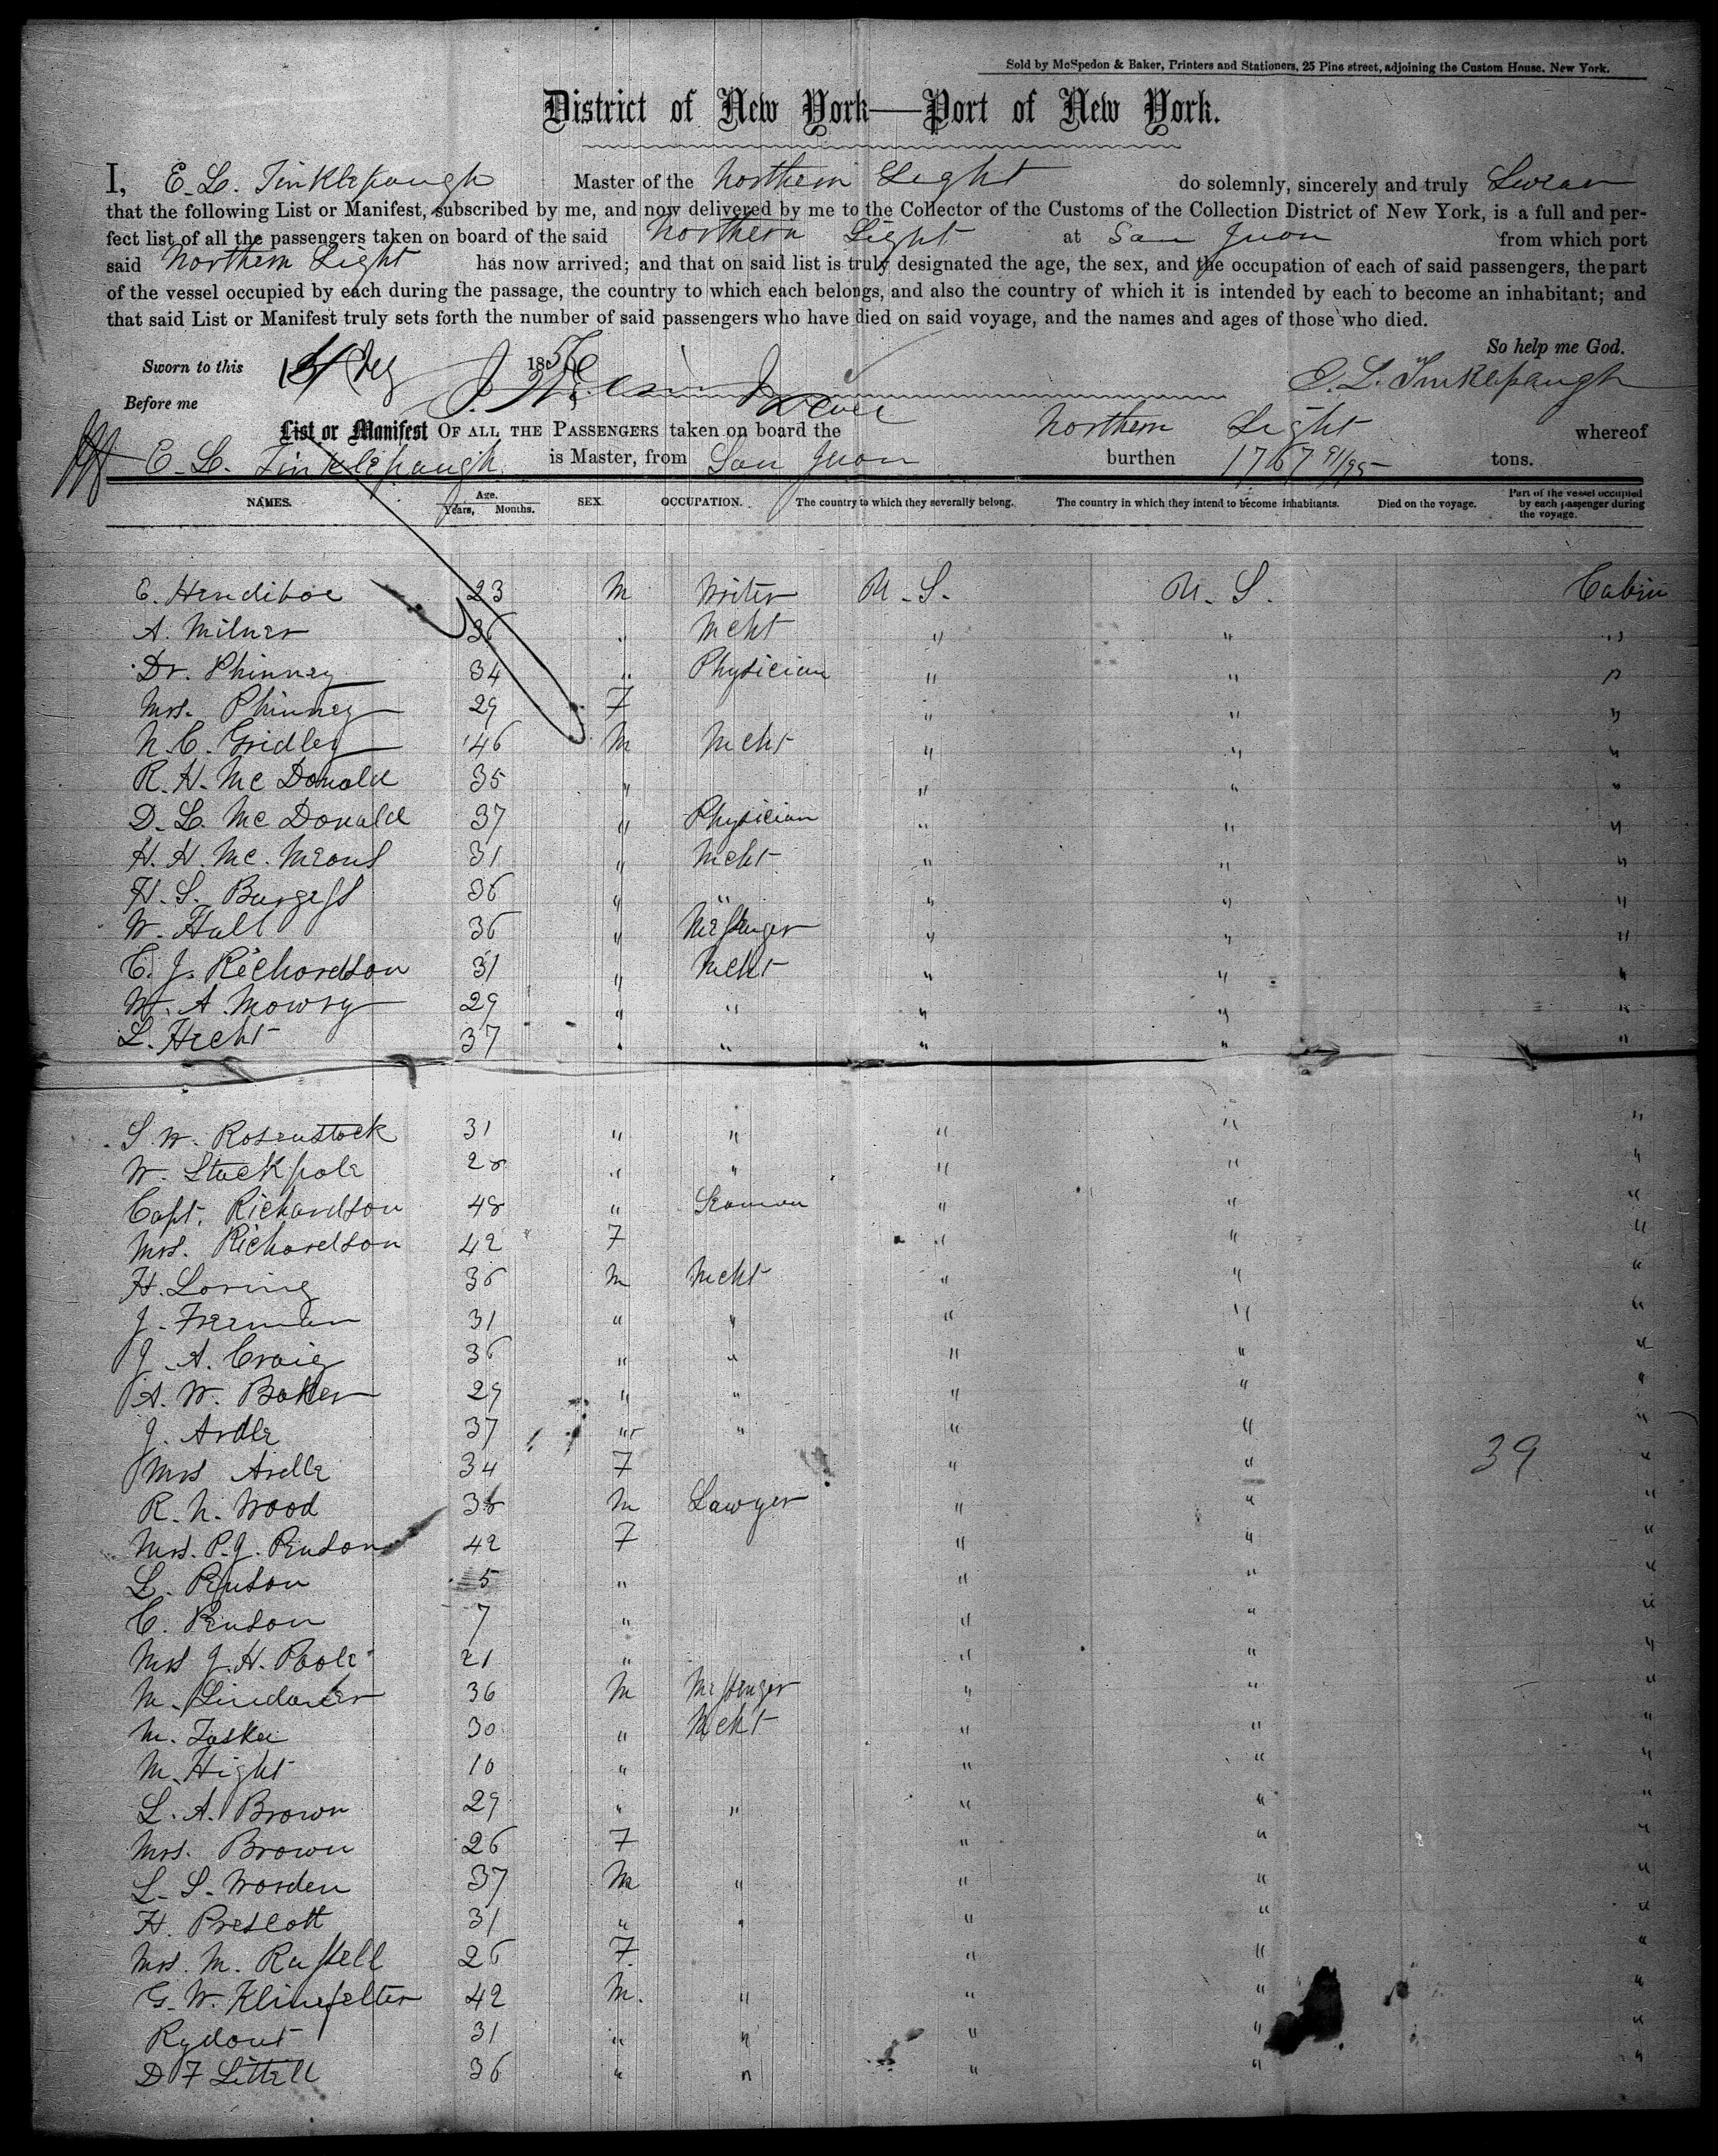 Sold by McSpedon & Baker, Printers and Stationers, 25 Pine street, adjoining the Custom House, New York.
District of New York—Port of New York.
I, E. L. Tinklepaugh Master of the Northern Light do solemnly, sincerely and truly Swear
that the following List or Manifest, subscribed by me, and now delivered by me to the Collector of the Customs of the Collection District of New York, is a full and per-
fect list of all the passengers taken on board of the said Northern Light at San Juan from which port
said Northern Light has now arrived; and that on said list is truly designated the age, the sex, and the occupation of each of said passengers, the part
of the vessel occupied by each during the passage, the country to which each belongs, and also the country of which it is intended by each to become an inhabitant; and
that said List or Manifest truly sets forth the number of said passengers who have died on said voyage, and the names and ages of those who died.
So help me God.
Sworn to this 1856 E. L. Tinklepaugh
Before me
List or Manifest OF ALL THE PASSENGERS taken on board the Northern Light whereof
E. L. Tinklepaugh is Master, from San Juan burthen 1767 91/95 tons.
NAMES. Age. Years, Months. SEX OCCUPATION. The country to which they severally belong. The country in which they intend to become inhabitants. Died on the voyage. Part of the vessel occupied by each passenger during the voyage.
E. Hendiboe 23 M Writer U.S. U.S. Cabin
A. Milner 36 " Mcht " " "
Dr. Phinney 34 " Physician " " "
Mrs. Phinney 29 F " " "
N. C. Gridley 46 M Mcht " " "
R. H. Mc Donald 35 " " " "
D. L. Mc Donald 37 " Physician " " "
H. H. Mc. Means 31 " Mcht " " "
H. S. Burgess 36 " " " " "
W. Hall 36 " Messenger " " "
C. J. Richardson 31 " Mcht " " "
W. A. Mowry 29 " " " " "
L. Hecht 37 " " " " "
S. W. Rosenstock 31 " " " " "
W. Stackpole 28 " " " " "
Capt. Richardson 48 " Seaman " " "
Mrs. Richardson 42 F " " "
H. Loring 36 M Mcht " " "
J. Freeman 31 " " " " "
J. A. Craig 36 " " " " "
A. W. Baker 29 " " " " "
J. Ardle 37 " " " " "
Mrs Ardle 34 F " " 39 "
R. N. Wood 38 M Lawyer " " "
Mrs. P. J. Benson 42 F " " "
L. Benson 5 " " " "
C. Benson 7 " " " "
Mrs J. H. Poole 21 " " " "
M. Lindauer 36 M Messenger " " "
M. Taska 30 " Mcht " " "
M. Hight 10 " " " "
L. A. Brown 29 " " " " "
Mrs. Brown 26 F " " "
L. S. Worden 37 M " " " "
H. Prescott 31 " " " " "
Mrs. M. Russell 26 F " " "
G. W. Klinefelter 42 M. " " " "
Rydout 31 " " " " "
D F Littell 36 " " " " "